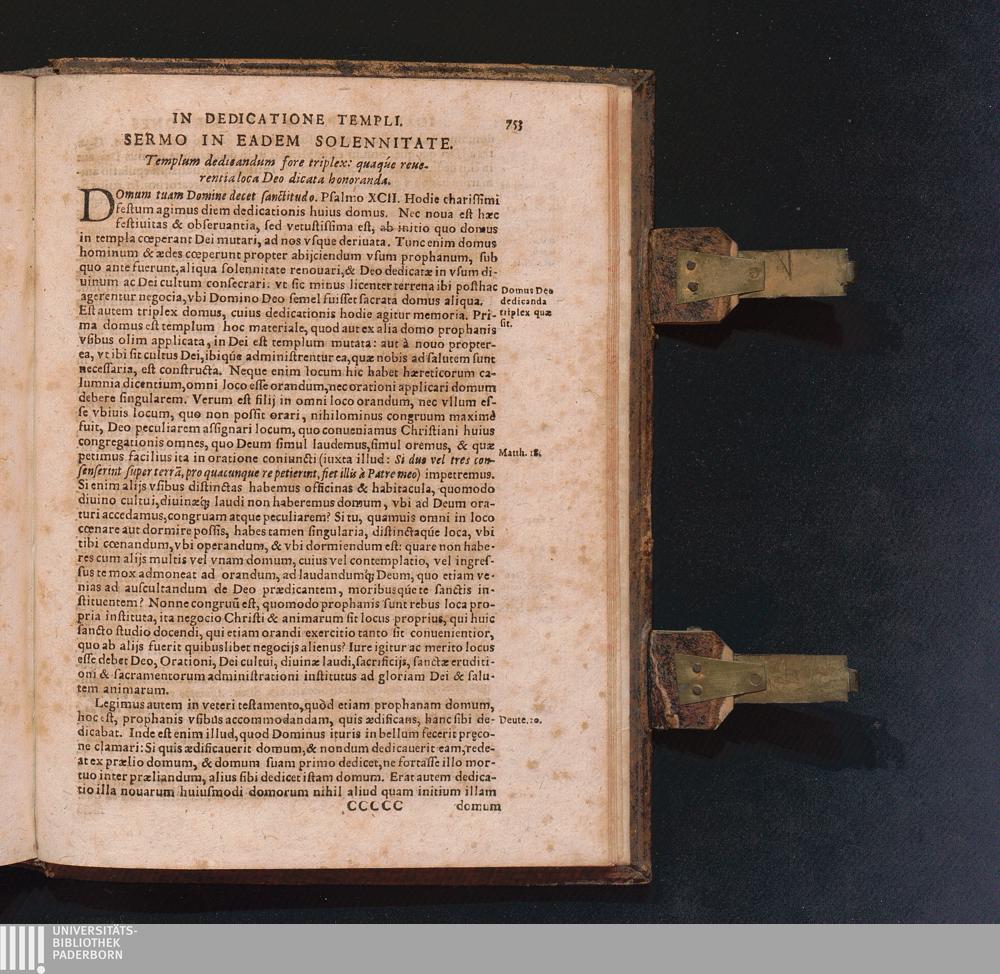 IN DEDICATIONE TEMPLI. 753
SERMO IN EADEM SOLENNITATE.
Templum dedicandum fore triplex: quaq́ue reue-
rentia loca Deo dicata honoranda.
DOmum tuam Domine decet sanctitudo. Psalmo XCII. Hodie charissimi
festum agimus diem dedicationis huius domus. Nec noua est hæc
festiuitas & obseruantia, sed vetustissima est, ab initio quo domus
in templa cœperant Dei mutari, ad nos vsque deriuata. Tunc enim domus
hominum & ædes cœperunt propter abijciendum vsum prophanum, sub
quo ante fuerunt, aliqua solennitate renouari, & Deo dedicatæ in vsum di-
uinum ac Dei cultum consecrari: vt sic minus licenter terrena ibi posthac
agerentur negocia, vbi Domino Deo semel fuisset sacrata domus aliqua.
Domus Deo
dedicanda
triplex quæ
sit.
Est autem triplex domus, cuius dedicationis hodie agitur memoria. Pri-
ma domus est templum hoc materiale, quod aut ex alia domo prophanis
vsibus olim applicata, in Dei est templum mutata: aut à nouo propter-
ea, vt ibi sit cultus Dei, ibiq́ue administrentur ea, quæ nobis ad salutem sunt
necessaria, est constructa. Neque enim locum hic habet hæreticorum ca-
lumnia dicentium, omni loco esse orandum, nec orationi applicari domum
debere singularem. Verum est filij in omni loco orandum, nec vllum es-
se vbiuis locum, quo non possit orari, nihilominus congruum maximè
fuit, Deo peculiarem assignari locum, quo conueniamus Christiani huius
congregationis omnes, quo Deum simul laudemus, simul oremus, & quæ
petimus facilius ita in oratione coniuncti (iuxta illud: Si duo vel tres con-
Matth. 18.
senserint super terrã, pro quacunque re petierint, fiet illis à Patre meo) impetremus.
Si enim alijs vsibus distinctas habemus officinas & habitacula, quomodo
diuino cultui, diuinæq; laudi non haberemus domum, vbi ad Deum ora-
turi accedamus, congruam atque peculiarem? Si tu, quamuis omni in loco
cœnare aut dormire possis, habes tamen singularia, distinctaq́ue loca, vbi
tibi cœnandum, vbi operandum, & vbi dormiendum est: quare non habe-
res cum alijs multis vel vnam domum, cuius vel contemplatio, vel ingres-
sus te mox admoneat ad orandum, ad laudandumq; Deum, quo etiam ve-
nias ad auscultandum de Deo prædicantem, moribusq́ue te sanctis in-
stituentem? Nonne congruũ est, quomodo prophanis sunt rebus loca pro-
pria instituta, ita negocio Christi & animarum sit locus proprius, qui huic
sancto studio docendi, qui etiam orandi exercitio tanto sit conuenientior,
quo ab alijs fuerit quibuslibet negocijs alienus? Iure igitur ac merito locus
esse debet Deo, Orationi, Dei cultui, diuinæ laudi, sacrificijs, sanctæ eruditi-
oni & sacramentorum administrationi institutus ad gloriam Dei & salu-
tem animarum.
Legimus autem in veteri testamento, quòd etiam prophanam domum,
hoc est, prophanis vsibus accommodandam, quis ædificans, hanc sibi de-
Deute. 20.
dicabat. Inde est enim illud, quod Dominus ituris in bellum fecerit pręco-
ne clamari: Si quis ædificauerit domum, & nondum dedicauerit eam, rede-
at ex prælio domum, & domum suam primo dedicet, ne fortasse illo mor-
tuo inter præliandum, alius sibi dedicet istam domum. Erat autem dedica-
tio illa nouarum huiusmodi domorum nihil aliud quam initium illam
CCCCC domum
UNIVERSITÄTS-
BIBLIOTHEK
PADERBORN